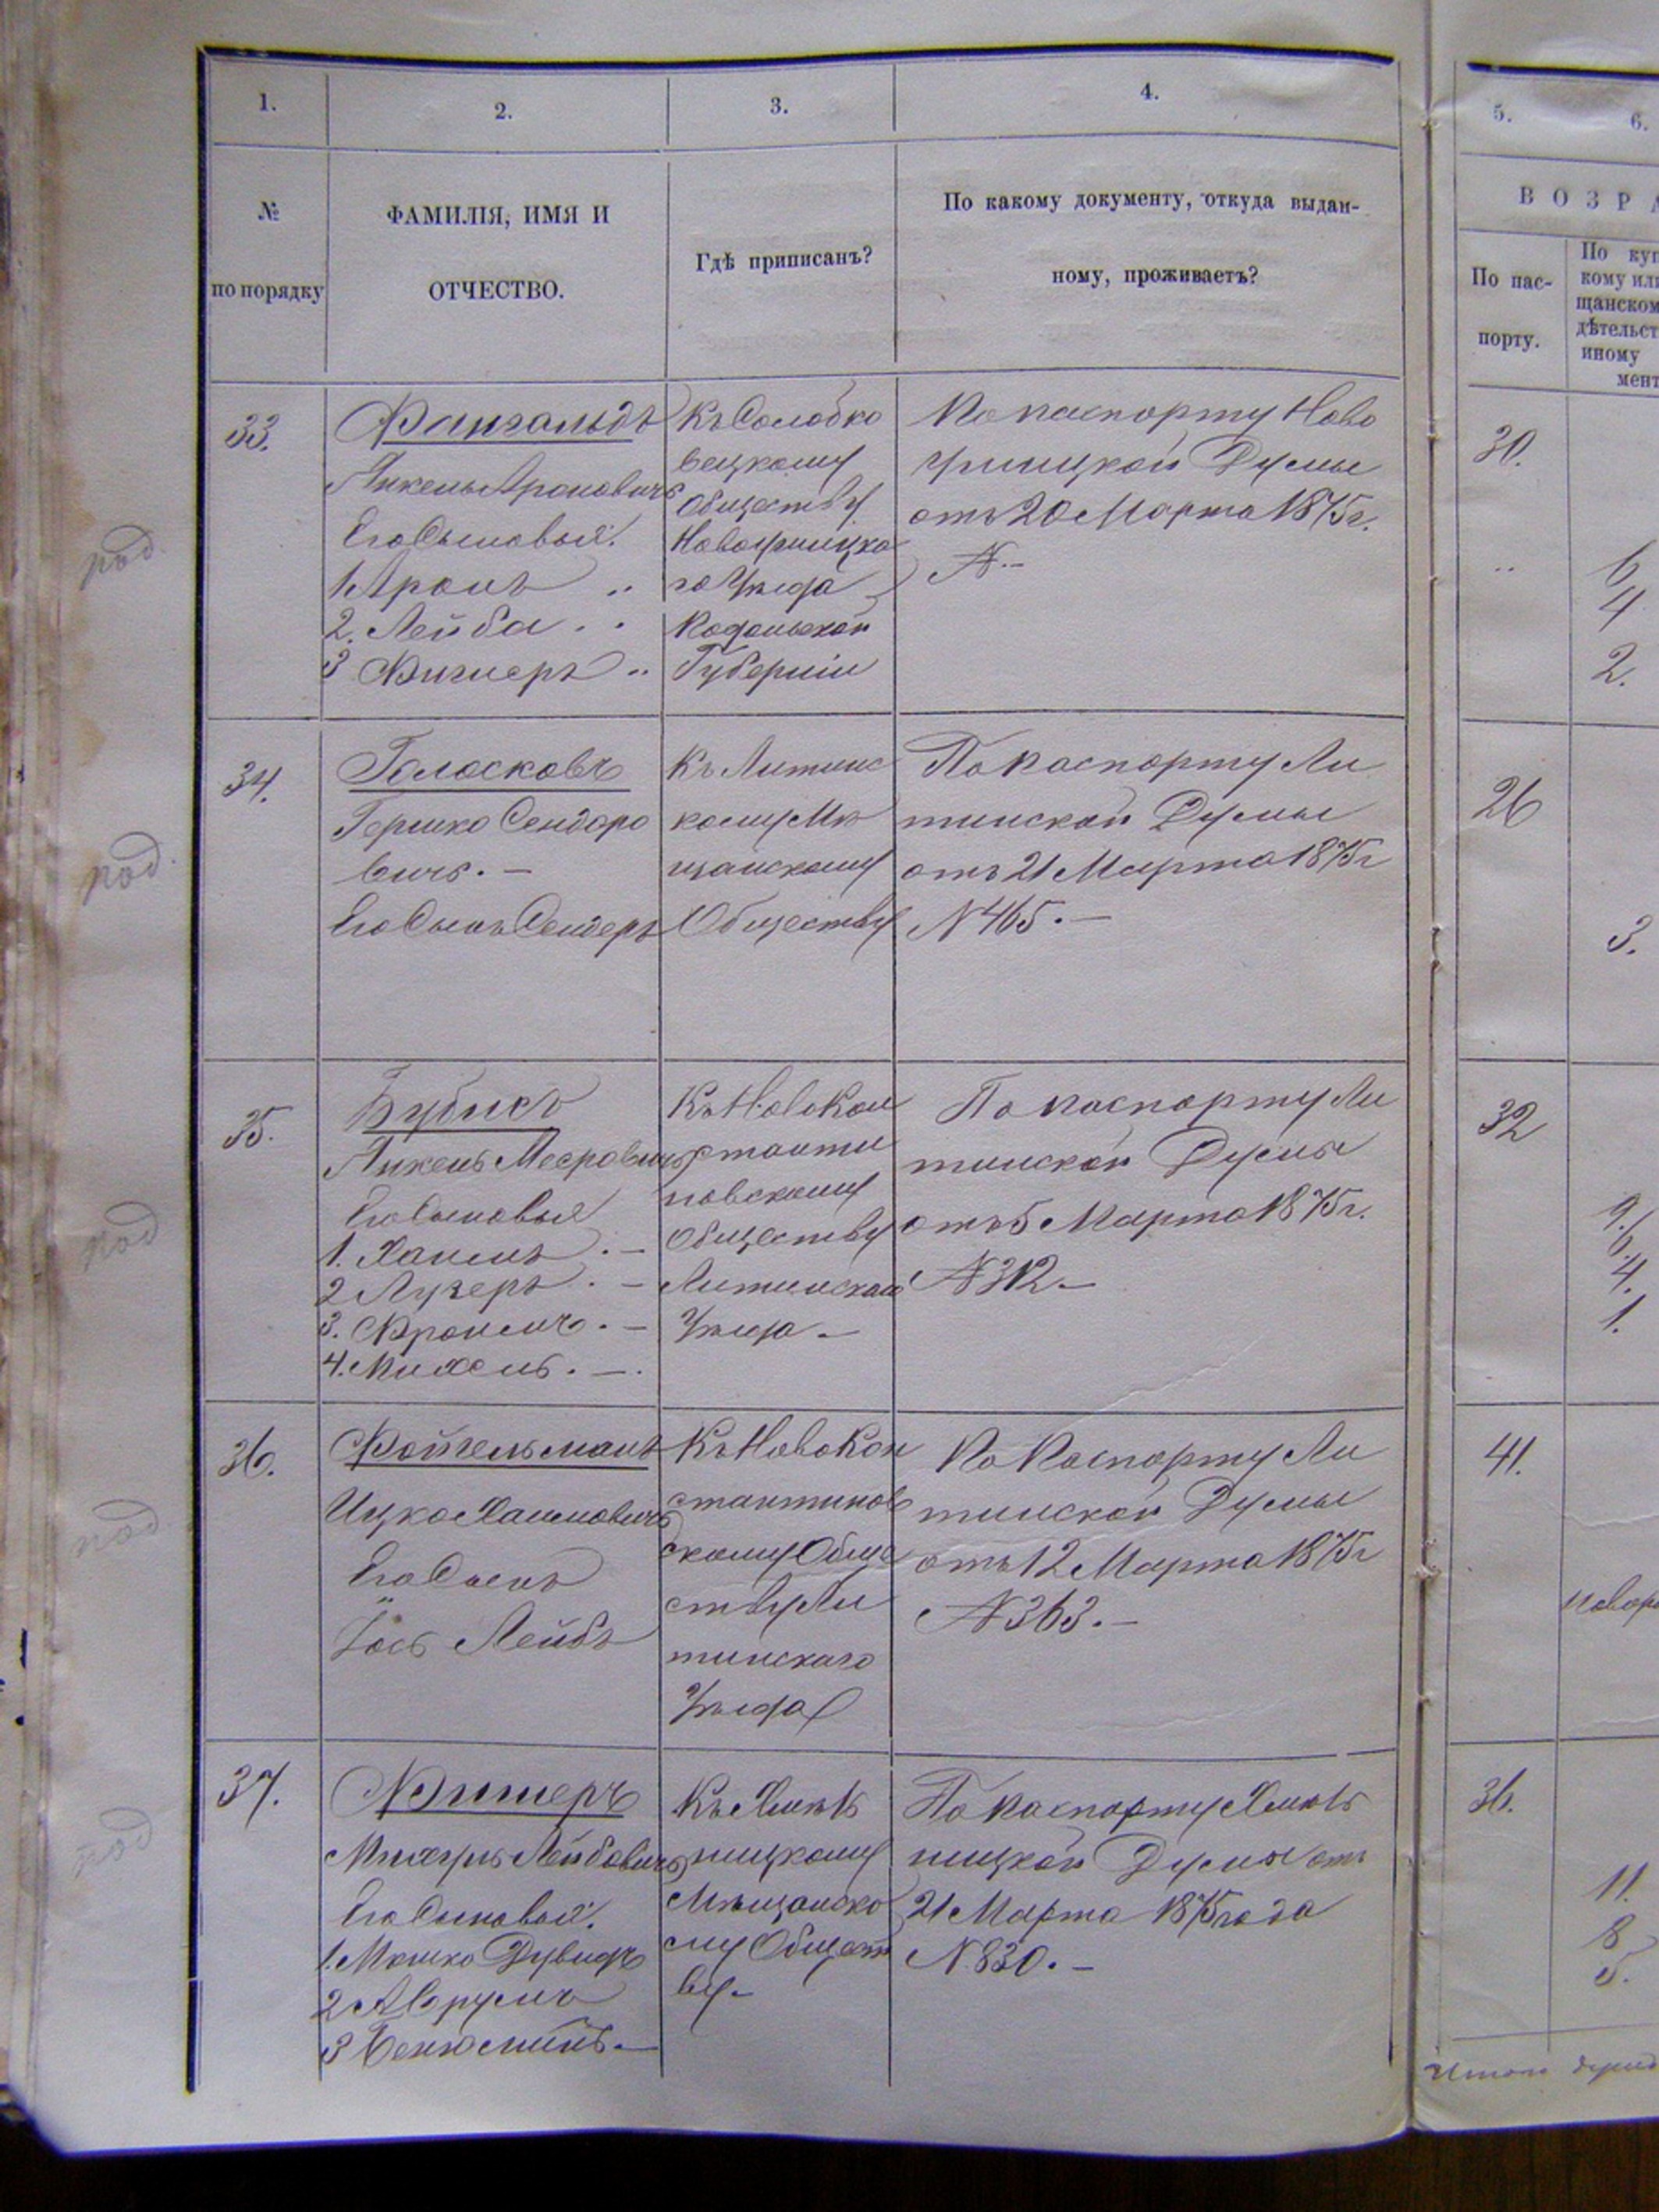 1.
2.
3.
4.
5.
6.
№
по порядку
ФАМИЛІЯ, ИМЯ И
ОТЧЕСТВО.
Гдѣ приписанъ?
По какому документу, откуда выдан-
ному, проживаетъ?
ВОЗРА
По пас-
порту.
По куп
кому или
щанском
дѣтельст
иному
мент
под
33.
Янкель Ароновичъ
Его Сыновья:
1 Аронъ ..
2. Лейба . .
3 Фишеръ ..
Къ Солобко
вецкому
Обществу
Новоушицка
го Уѣзда
Подольской
Губерніи
По паспорту Ново
ушицкой Думы
отъ 20 Марта 1875г.
№ -
30.
..
6
4
2.
под.
34.
Голосковъ
Гершко Сендоро
вичъ. —
Его Сынъ Сендеръ
Къ Литинс
кому Мѣ
щанскому
Обществу
По паспорту Ли
тинской Думы
отъ 21 Марта 1875г
№ 465. —
26
3.
под
35.
Бубисъ
Янкель Мееровичъ
Его Сыновья
1. Хаимъ . —
2 Лузеръ . —
3. Фроимъ . —
4. Михель . — .
Къ Новокон
станти
новскому
Обществу
Литинскаго
Уѣзда —
По паспорту Ли
тинской Думы
отъ 5 Марта 1875г.
№ 312. —
32
9.
6.
4.
1.
под
36.
Фойгельманъ
Ицко Хаимовичъ
Его Сынъ
Іось Лейбъ
Къ Новокон
стантинов
скому Обще
ству Ли
тинскаго
Уѣзда
По Паспорту Ли
тинской Думы
отъ 12 Марта 1875г
№ 363. —
41.
под
37.
Фишеръ
Лейбовичъ
Его Сыновья:
1. Мошко Дувидъ
2 Аврумъ
3 Беніоминъ. —
Къ Хмѣль
ницкому
Мѣщанско
му Общест
ву. —
По паспорту Хмѣль
ницкой Думы отъ
21 Марта 1875 года
№ 830. —
36.
11.
8
5.
Итого душъ